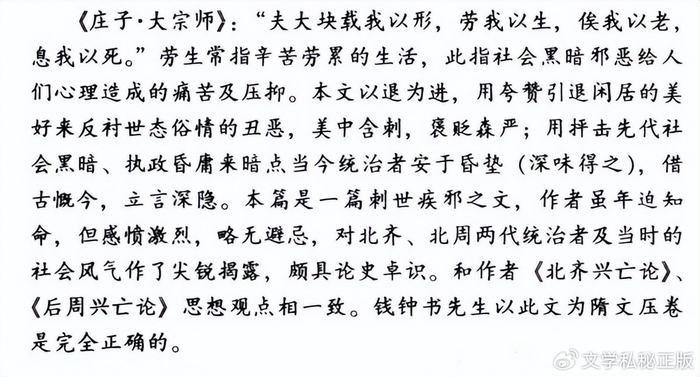 《庄子·大宗师》：“夫大块载我以形，劳我以生，俟我以老，
息我以死。”劳生常指辛苦劳累的生活，此指社会黑暗邪恶给人
们心理造成的痛苦及压抑。本文以退为进，用夸赞引退闲居的美
好来反衬世态俗情的丑恶，美中含刺，褒贬森严；用抨击先代社
会黑暗、执政昏庸来暗点当今统治者安于昏垫（深味得之），借
古慨今，立言深隐。本篇是一篇刺世疾邪之文，作者虽年迫知
命，但感愤激烈，略无避忌，对北齐、北周两代统治者及当时的
社会风气作了尖锐揭露，颇具论史卓识。和作者《北齐兴亡论》、
《后周兴亡论》思想观点相一致。钱钟书先生以此文为隋文压卷
是完全正确的。
@文学私秘正版